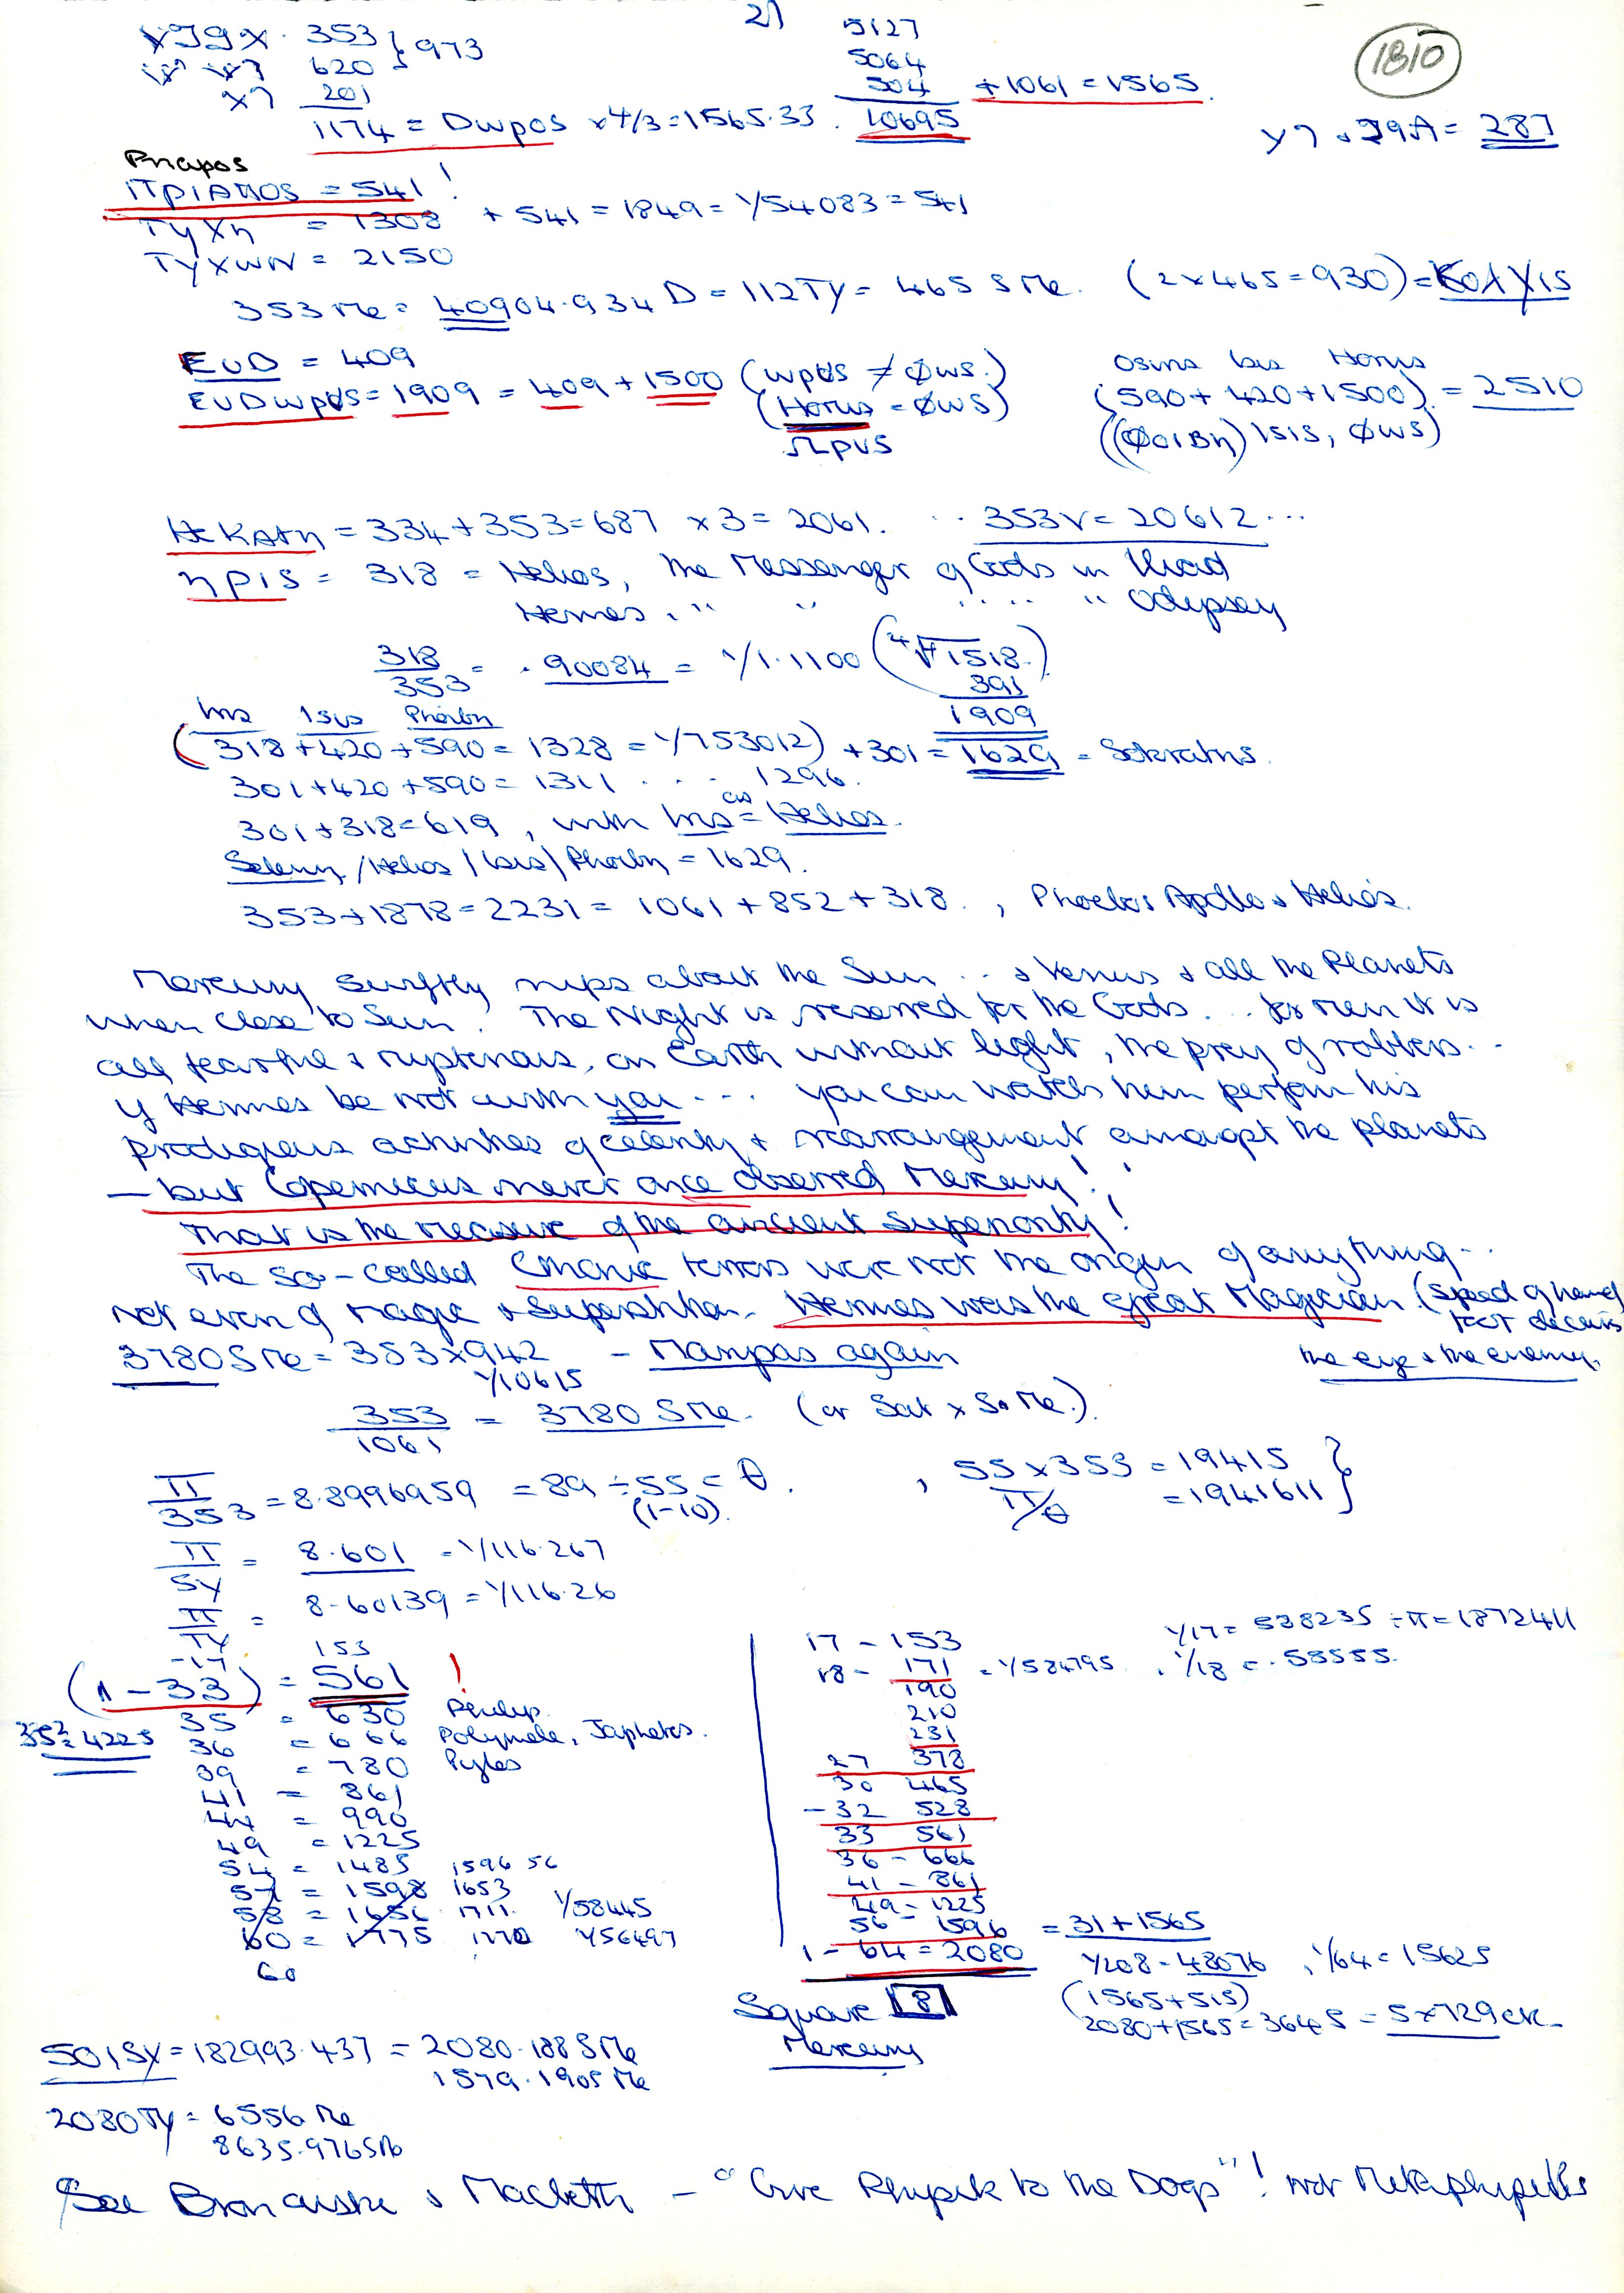 21
353 } 973
620
201
1174 = Dwpos x 4/3 = 1565.33.
5127
5064
504
10695
+1061 = 1565.
1810
= 287
Priapos
ΠΡΙΑΠΟS = 541!
TyXη = 1308 + 541 = 1849 = 1/54083 = 541
TyXWN = 2150
353 Me = 40904.934 D = 112Ty = 465 SMe. (2x465=930) =
EUD = 409
EUDwpus = 1909 = 409 + 1500 (wpus ≠ Øws.)
(Horus = Øws)
Ωpus
Osiris Isis Horus
(590 + 420 + 1500) = 2510
((ØOIBη) ISIS, ØWS)
HEKATη = 334 + 353 = 687 x 3 = 2061. .. 353V = 20612...
ηPIS = 318 = Helios, the Messenger of Gods in Iliad
Hermes, " " " " " Odyssey
318/353 = .90084 = 1/1.1100 (4√1518.)
391
1909
Iris Isis Phoibη
(318 + 420 + 590 = 1328 = 1/753012) + 301 = 1629 = Sokratηs.
301 + 420 + 590 = 1311 . . . 1296.
301 + 318 = 619, with Iris = Helios.
Selenη / Helios / Isis / Phoibη = 1629.
353 + 1878 = 2231 = 1061 + 852 + 318. , Phoebus Apollo & Helios.
Mercury swiftly nips about the Sun ... & Venus & all the Planets
when close to Sun. The Night is reserved for the Gods... for men it is
all fearful & mysterious, on Earth without light, the prey of robbers...
if Hermes be not with you.... You can watch him perform his
prodigious activities of celerity & rearrangement amongst the planets
— but Copernicus never once observed Mercury!
That is the measure of the ancient superiority!
The so-called terrors were not the origin of anything...
not even of magic & superstition. Hermes was the great Magician. (speed of hand
foot deceives
the eye & the enemy.
3780 SMe = 353 x 942 - Marpas again
1/10615
353/1061 = 3780 SMe. (or Sat x S.Me.)
π/353 = 8.8996959 = 89 ÷ 55 = θ.
(1-10).
, 55 x 353 = 19415 }
π/θ = 1941611 }
π/SY = 8.601 = 1/116.267
π/TY = 8.60139 = 1/116.26
-17 153
(1 - 33) = 561 !
35 = 630
36 = 666 Polymele, Japhetos.
39 = 780 Pyles
35² = 4225
41 = 861
44 = 990
49 = 1225
54 = 1485 1596 56
57 = 1598 1653
58 = 1656 1711. 1/58445
60 = 1775 1770 1/56497
60
17 - 153
18 - 171 = 1/584795.
1/17 = 588235 ÷ π = 1872411
, 1/18 = .58555.
190
210
231
27 378
30 465
-32 528
33 561
36 - 666
41 - 861
49 - 1225
56 - 1596 = 31 + 1565
1 - 64 = 2080
1/208 = 48076, 1/64 = 15625
(1565 + 515)
2080 + 1565 = 3645 = 5 x 729 etc.
Square 8
Mercury
501SY = 182993.437 = 2080.188 SMe
1579.1905 Me
2080 TY = 6556 Me
8635.976 SMe
See & Macbeth - "Give Physik to the Dogs"! not Metaphysics